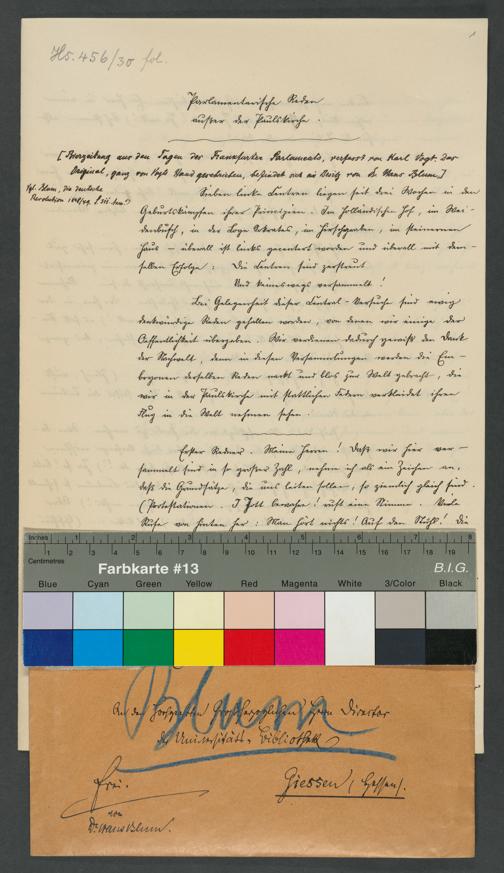 Hs. 456/30 fol.
1
Parlamentarische Reden
außer der Paulskirche.
[Bierzeitung aus den Tagen des Frankfurter Parlaments, verfasst von Karl Vogt. Das
Original, ganz von Vogts Hand geschrieben, befindet sich im Besitz von Dr. Hans Blum.]
Vgl. Blum, die deutsche
Revolution 1848/49, S.
Sieben linke Centren liegen seit drei Wochen in den
Geburtskämpfen ihrer Prinzipien. Im Holländischen Hof, im Wei-
denbusch, in der Loge Sokrates, im Hirschgraben, im steinernen
Haus – überall ist links gecentert worden und überall mit dem-
selben Erfolge: Die Centren sind zerstreut
Und keineswegs versammelt!
Bei Gelegenheit dieser Central-Versuche sind ewig
denkwürdige Reden gehalten worden, von denen wir einige der
Oeffentlichkeit übergeben. Wir verdienen dadurch gewiß den Dank
der Nachwelt, denn in diesen Versammlungen werden die Em-
bryonen derselben Reden nackt und bloß zur Welt gebracht, die
wir in der Paulskirche mit stattlichen Federn verkleidet ihren
Flug in die Welt nehmen sehen.
Erster Redner. Meine Herren! Daß wir hier ver-
sammelt sind in so großer Zahl, nehme ich als ein Zeichen an,
daß die Grundsätze, die uns leiten sollen, so ziemlich gleich sind.
(Protestationen. I Gott bewahre! ruft eine Stimme. Viele
Rufe von hinten her: Man hört nichts! Auf den Stuhl! Die
Inches 1 2 3 4 5 6 7 8
Centimetres 1 2 3 4 5 6 7 8 9 10 11 12 13 14 15 16 17 18 19
Farbkarte #13
B.I.G.
Blue Cyan Green Yellow Red Magenta White 3/Color Black
Blum
An den Großherzoglichen Herrn Director
der Universitäts-Bibliothek
Frei.
Giessen (Hessen).
von
Dr. Hans Blum.